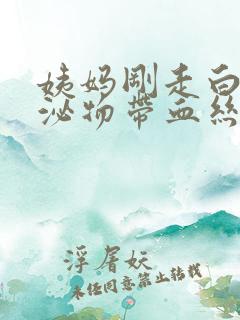 姨妈剛走白
泌物帶血絲
浮屠妖
未经同意禁止转载